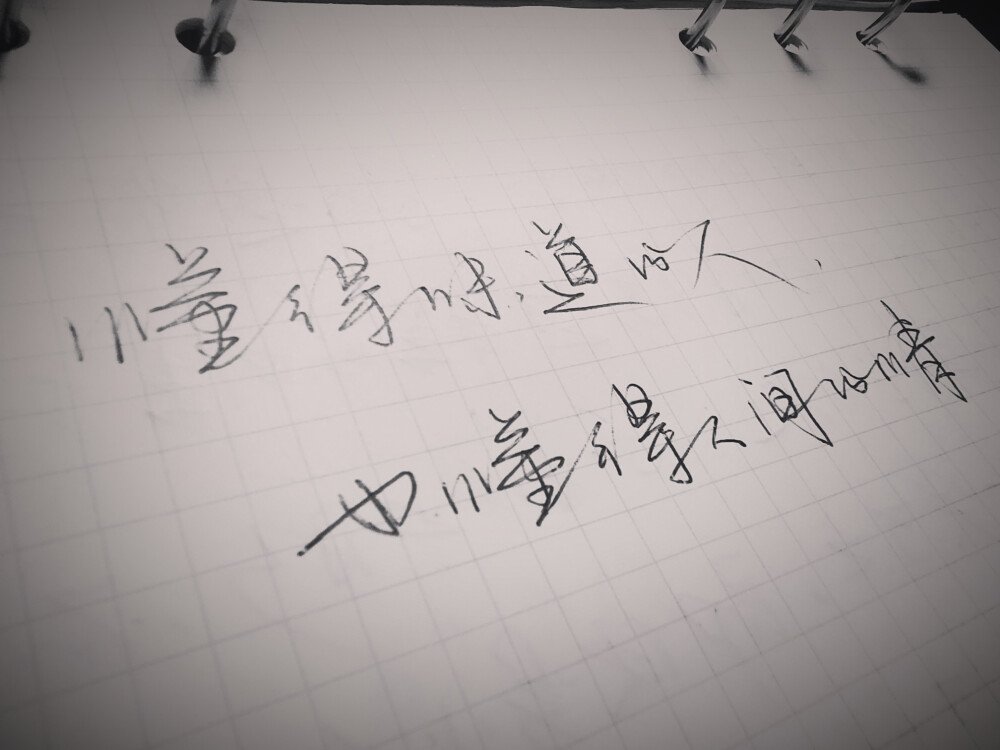 懂得味道的人,
也懂得人间的情